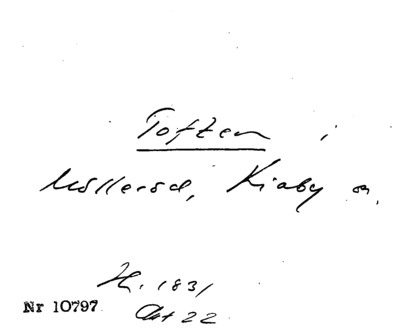 Toften i
Mölleröd, Kiaby sn.
H. 1831
Akt 22
Nr 10797